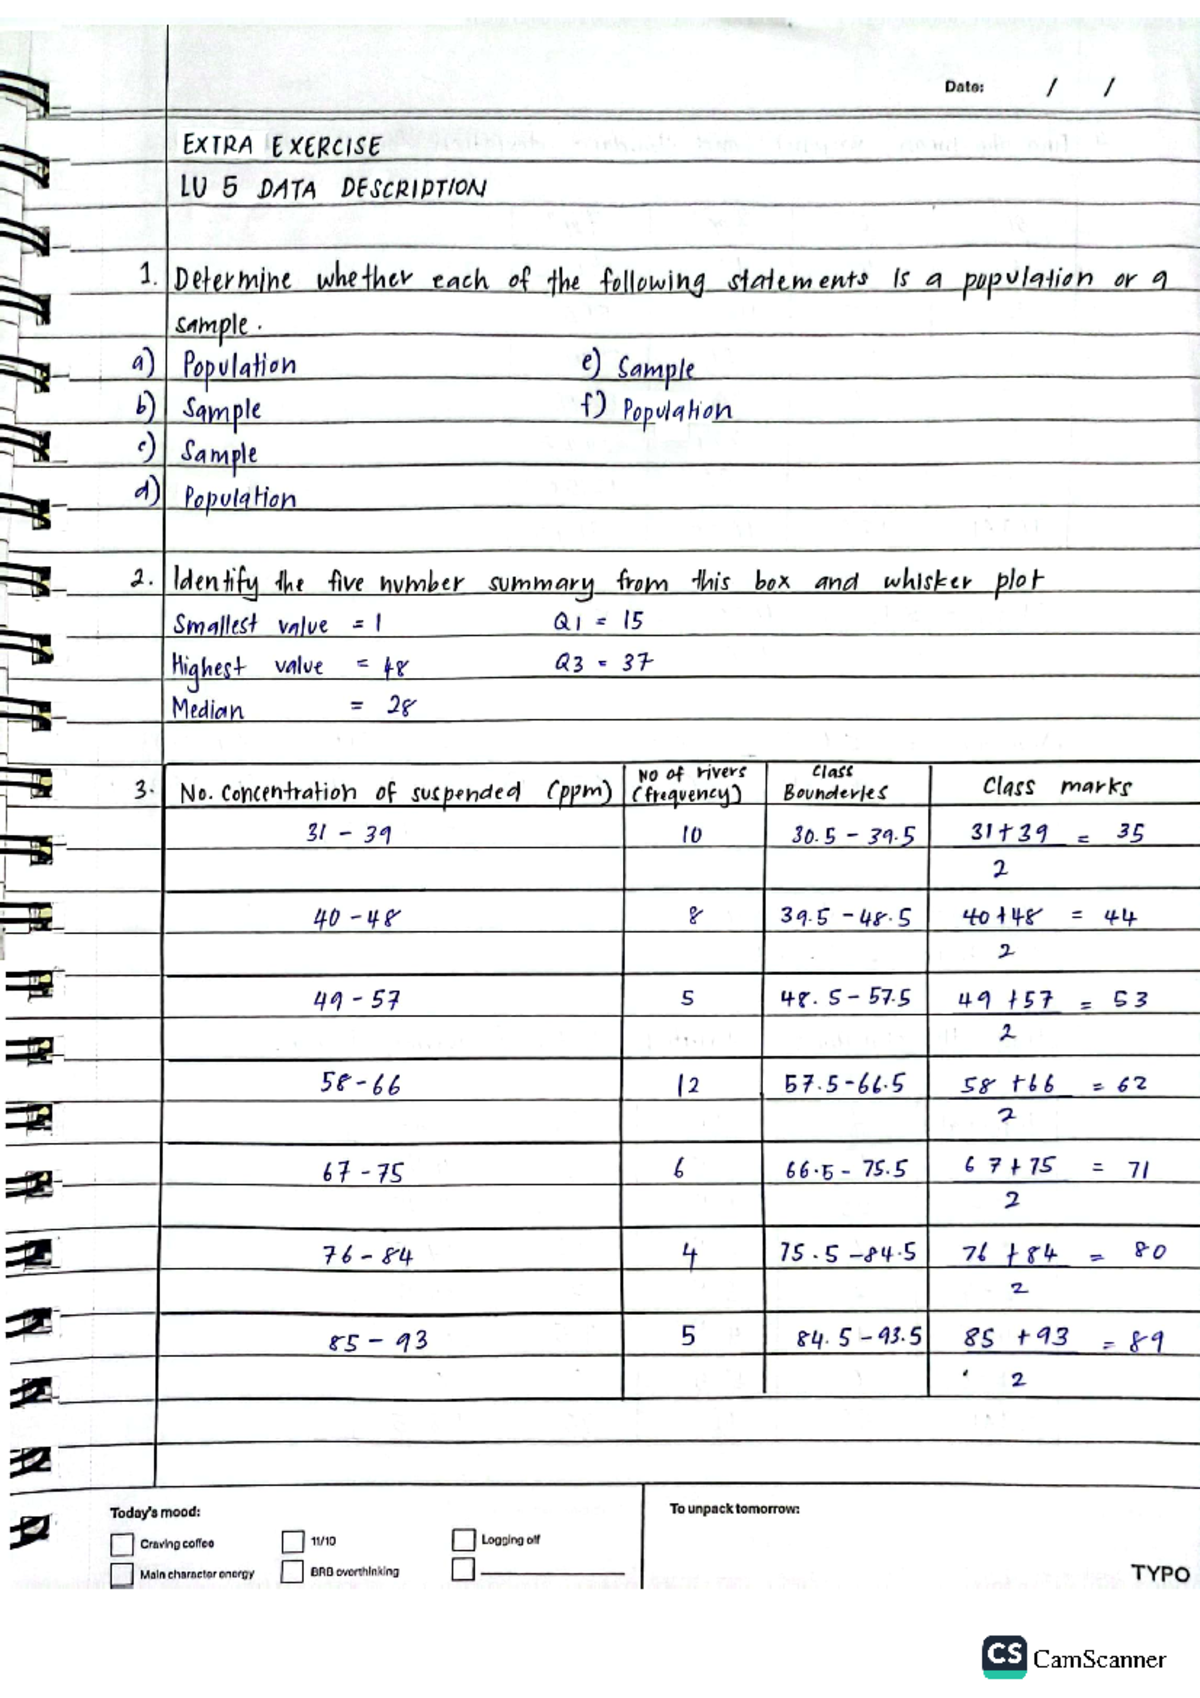 Date: / /
EXTRA EXERCISE
LU 5 DATA DESCRIPTION
1. Determine whether each of the following statements is a population or a
sample.
a) Population e) Sample
b) Sample f) Population
c) Sample
d) Population
2. Identify the five number summary from this box and whisker plot
Smallest value = 1 Q1 = 15
Highest value = 48 Q3 = 37
Median = 28
3. No. Concentration of suspended (ppm) No of rivers (frequency) Class Bounderies Class marks
31 - 39 10 30.5 - 39.5 31+39 = 35
2
40 - 48 8 39.5 - 48.5 40+48 = 44
2
49 - 57 5 48.5 - 57.5 49+57 = 53
2
58 - 66 12 57.5 - 66.5 58+66 = 62
2
67 - 75 6 66.5 - 75.5 67+75 = 71
2
76 - 84 4 75.5 - 84.5 76+84 = 80
2
85 - 93 5 84.5 - 93.5 85+93 = 89
2
Today's mood: To unpack tomorrow:
Craving coffee 11/10 Logging off
Main character energy BRB overthinking
TYPO
CS CamScanner